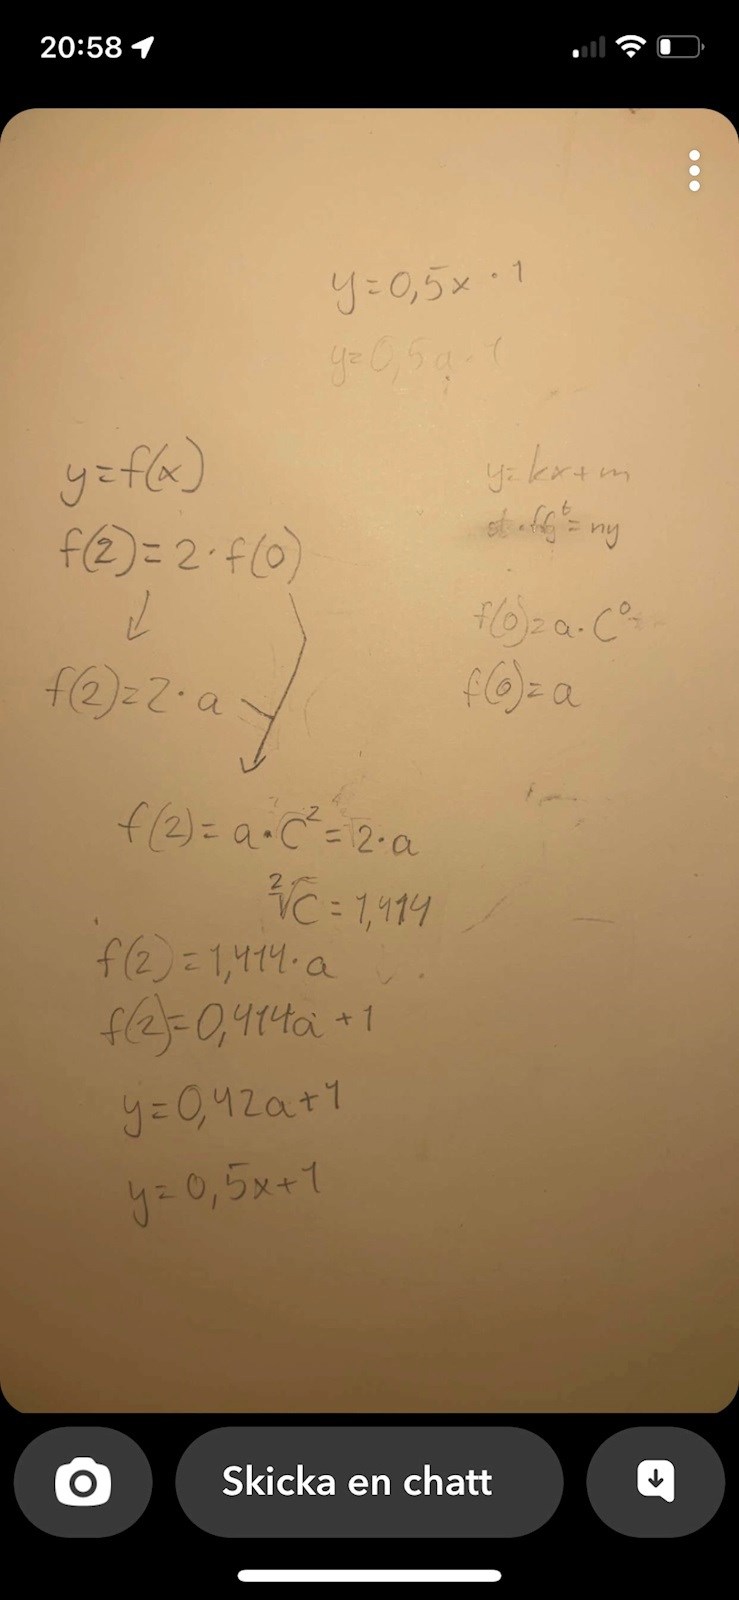 20:58
y=0,5x·1
y=0,5a·1
y=f(x)
f(2)=2·f(0)
f(2)=2·a
y=kx+m
=ny
f(0)=a·C⁰
f(0)=a
f(2)=a·C²=2·a
²√C=1,414
f(2)=1,414·a
f(2)=0,414a+1
y=0,42a+1
y=0,5x+1
Skicka en chatt